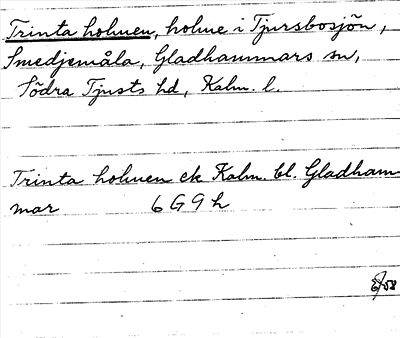 Trinta holmen, holme i Tjursbosjön,
Smedjemåla, Gladhammars sn,
Södra Tjusts hd, Kalm. l.
Trinta holmen ek Kalm. bl. Gladham
mar 6 G 9 h